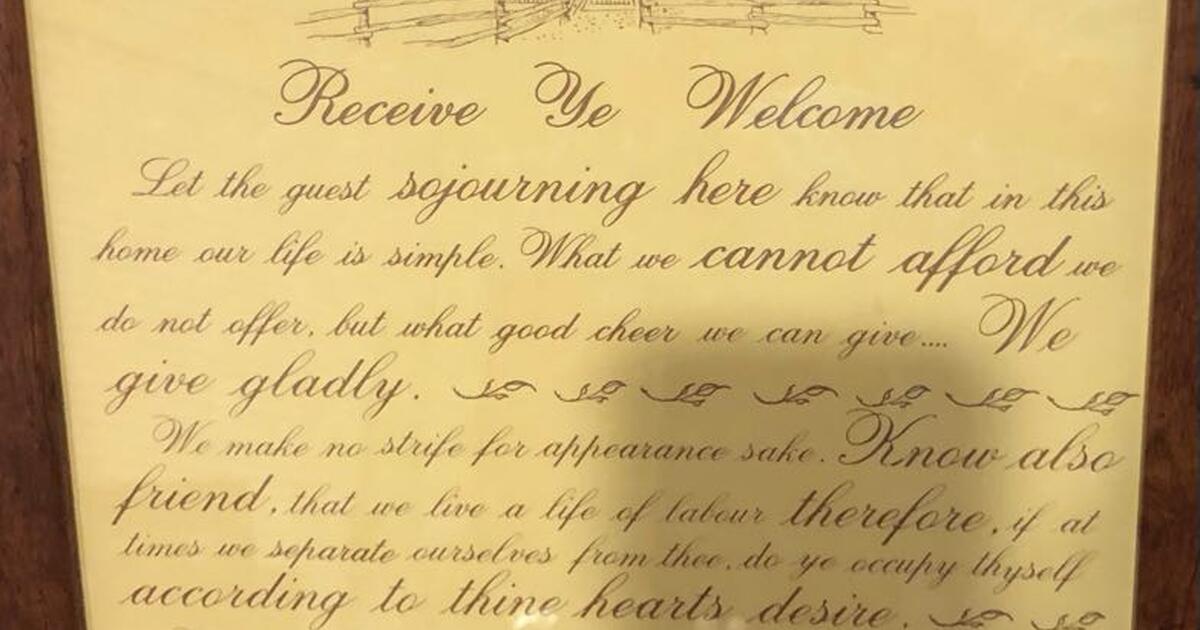 Receive Ye Welcome
Let the guest sojourning here know that in this
home our life is simple. What we cannot afford we
do not offer, but what good cheer we can give.... We
give gladly.
We make no strife for appearance sake. Know also
friend, that we live a life of labour therefore, if at
times we separate ourselves from thee, do ye occupy thyself
according to thine hearts desire.